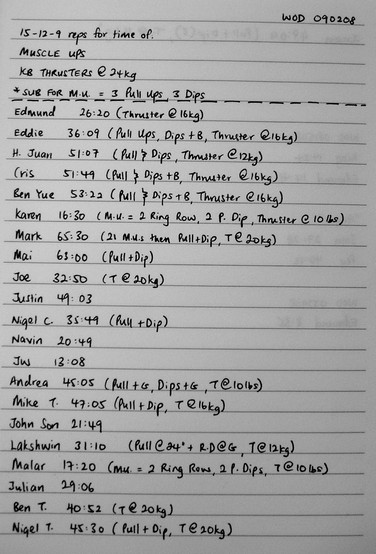 WOD 090208
15-12-9 reps for time of:
MUSCLE UPS
KB THRUSTERS @ 24kg
* SUB FOR M.U. = 3 Pull Ups, 3 Dips
Edmund 26:20 (Thruster @ 16kg)
Eddie 36:09 (Pull Ups, Dips + B, Thruster @ 16kg)
H. Juan 51:07 (Pull & Dips, Thruster @ 12kg)
Cris 51:49 (Pull & Dips + B, Thruster @ 16kg)
Ben Yue 53:22 (Pull & Dips + B, Thruster @ 16kg)
Karen 16:30 (M.U. = 2 Ring Row, 2 P. Dip, Thruster @ 10 lbs)
Mark 65:30 (21 M.U.s then Pull + Dip, T @ 20kg)
Mai 63:00 (Pull + Dip)
Joe 32:50 (T @ 20kg)
Justin 49:03
Nigel C. 35:49 (Pull + Dip)
Navin 20:49
JW 13:08
Andrea 45:05 (Pull + G, Dips + G, T @ 10lbs)
Mike T. 47:05 (Pull + Dip, T @ 16kg)
John Son 21:49
Lakshwin 31:10 (Pull @ 24" + R.D @ G, T @ 12kg)
Malar 17:20 (Mu. = 2 Ring Row, 2 P. Dips, T @ 10 lbs)
Julian 29:06
Ben T. 40:52 (T @ 20kg)
Nigel T. 45:30 (Pull + Dip, T @ 20kg)